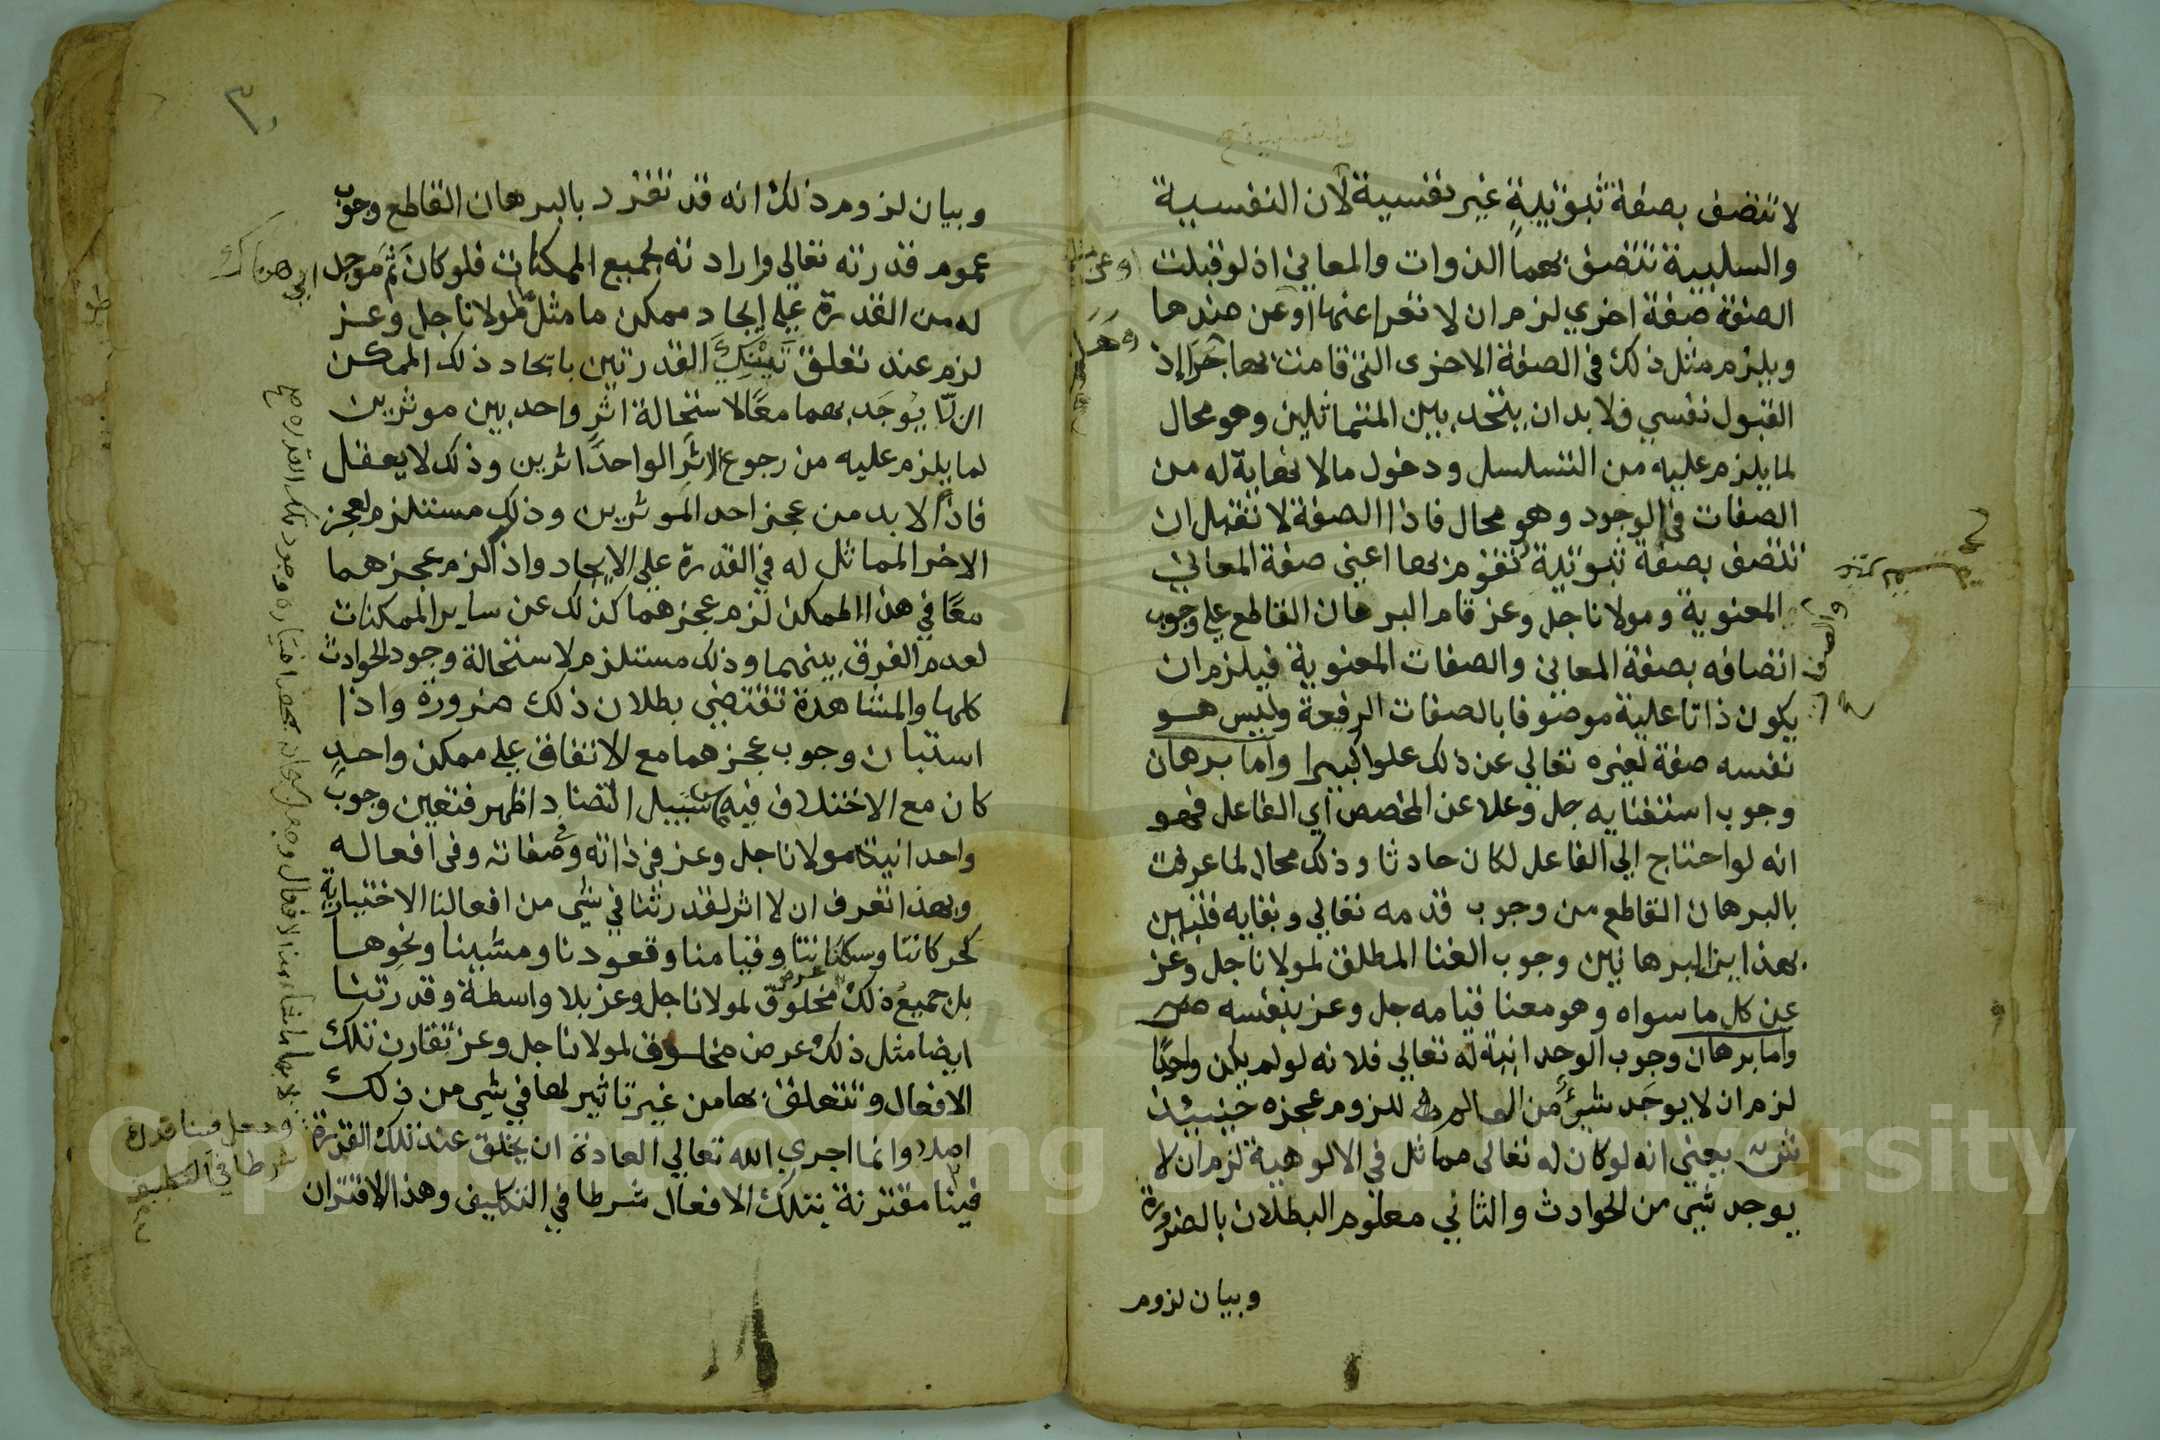 لا تتصف بصفة ثبوتية غير نفسية لان النفسية
والسلبية تتصف بهما الذوات والمعاني اذ لو قبلت
الصفة صفة اخري لزم ان لا تعرا عنها او عن ضدها
ويلزم مثل ذلك في الصفة الاخرى التي قامت بها جرا اذ
القبول نفسي فلا بد ان يتحد بين المتماثلين وهو محال
لما يلزم عليه من التسلسل ودخول ما لا نهاية له من
الصفات في الوجود وهو محال فاذا الصفة لا تقبل ان
تتصف بصفة ثبوتية تقوم بها اعني صفة المعاني
المعنوية ومولانا جل وعز قام البرهان القاطع علي وجوب
اتصافه بصفة المعاني والصفات المعنوية فيلزم ان
يكون ذاتا علية موصوفا بالصفات الرفيعة وليس هو
نفسه صفة لغيره تعالي عن ذلك علوا كبيرا واما برهان
وجوب استغنايه جل وعلا عن المخصص اي الفاعل فهو
انه لو احتاج الي الفاعل لكان حادثا وذلك محال لما عرفت
بالبرهان القاطع من وجوب قدمه تعالي وبقايه فتبين
بهذاين البرهانين وجوب الغنا المطلق لمولانا جل وعز
عن كل ما سواه وهو معنا قيامه جل وعز بنفسه ص
واما برهان وجوب الوحدانية له تعالي فلانه لو لم يكن واحدا
لزم ان لا يوجد شئ من العالم للزوم عجزه حينيذ
ش يعني انه لو كان له تعالى مماثل في الالوهية لزم ان لا
يوجد شئ من الحوادث والثاني معلوم البطلان بالضرورة
وبيان لزوم
٣٠
وبيان لزوم ذلك انه قد تقرر بالبرهان القاطع وجوب
عموم قدرته تعالي وارادته لجميع الممكنات فلو كان ثم موجد
له من القدرة علي ايجاد ممكن ما مثل لمولانا جل وعز
لزم عند تعلق تينك القدرتين بايجاد ذلك الممكن
ان لا يوجد بهما معا لاستحالة اثر واحد بين موثرين
لما يلزم عليه من رجوع الاثر الواحد اثرين وذلك لا يعقل
فاذا لا بد من عجز احد الموثرين وذلك مستلزم لعجز
الاخر المماثل له في القدرة علي الايجاد واذا لزم عجزهما
معا في هذا الممكن لزم عجزهما كذلك عن ساير الممكنات
لعدم الفرق بينهما وذلك مستلزم لاستحالة وجود الحوادث
كلها والمشاهدة تقتضي بطلان ذلك ضرورة واذا
استبان وجوب عجزهما مع الاتفاق علي ممكن واحد
كان مع الاختلاف فيه سبيل التضاد اظهر فتعين وجوب
واحدانية مولانا جل وعز في ذاته وصفاته وفي افعاله
وبهذا تعرف ان لا اثر لقدرتنا في شي من افعالنا الاختيارية
كحركاتنا وسكناتنا وقيامنا وقعودنا ومشينا ونحوها
بل جميع ذلك مخلوق لمولانا جل وعز بلا واسطة وقدرتنا
ايضا مثل ذلك عرض مخلوق لمولانا جل وعز تقارن تلك
الافعال وتتعلق بها من غير تاثير لها في شي من ذلك
اصلا وانما اجري الله تعالي العادة ان يخلق عند تلك القدرة
فينا مقترنة بتلك الافعال شرطا في التكليف وهذا الاقتران
Copyright © King Saud University